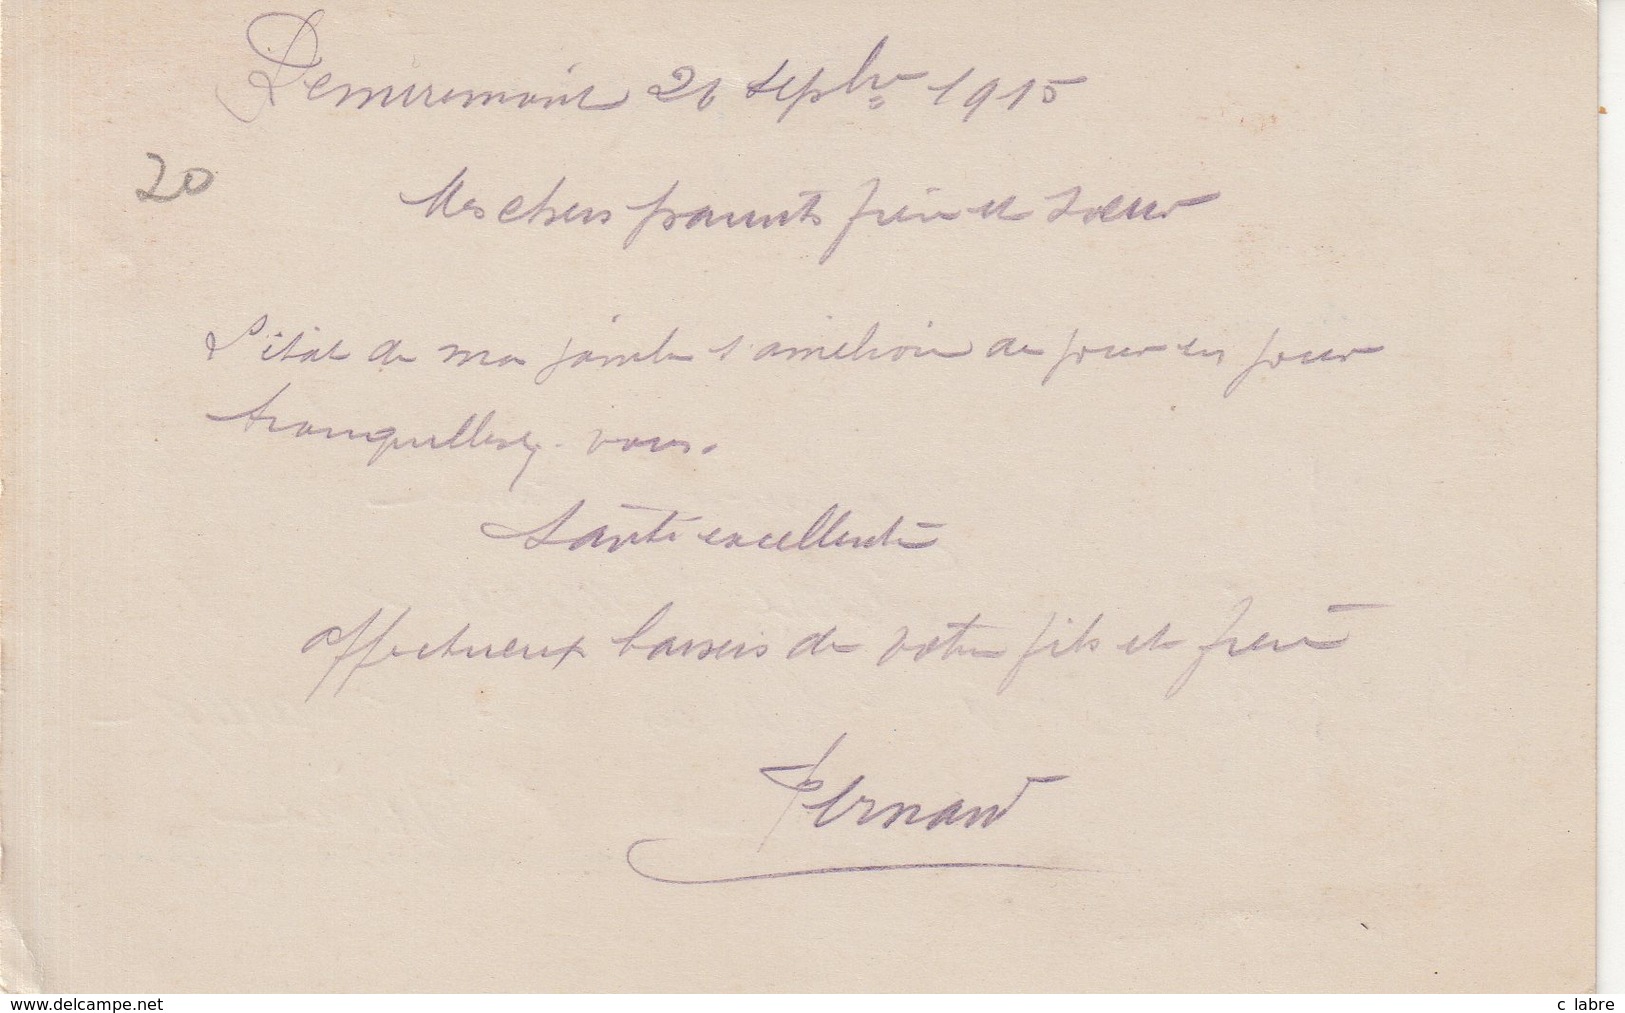 Remiremont 26 septbre 1915
20
Mes chers parents frère et soeur
L'état de ma jambe s'améliore de jour en jour
tranquillisez-vous.
Santé excellente
affectueux baisers de votre fils et frère
Fernand
www.delcampe.net
c labre